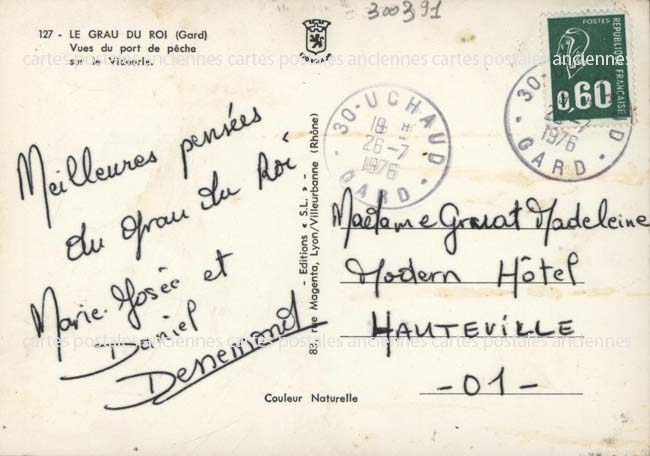 300391
127 - LE GRAU DU ROI (Gard)
Vues du port de pêche
sur le Vidourle.
cartes postales anciennes cartes postales anciennes
Meilleures pensées
du Grau du Roi
Marie-Josée et
Daniel
Dessemond
- Editions « S.L. » -
83, rue Magenta, Lyon/Villeurbanne (Rhône)
30-UCHAUD
18 H
26-7
1976
GARD
POSTES
REPUBLIQUE FRANÇAISE
0,60
30-UCHAUD
26-7
1976
GARD
Madame Gruat Madeleine
Modern Hôtel
HAUTEVILLE
cartes postales anciennes cartes postales anciennes
-01-
Couleur Naturelle